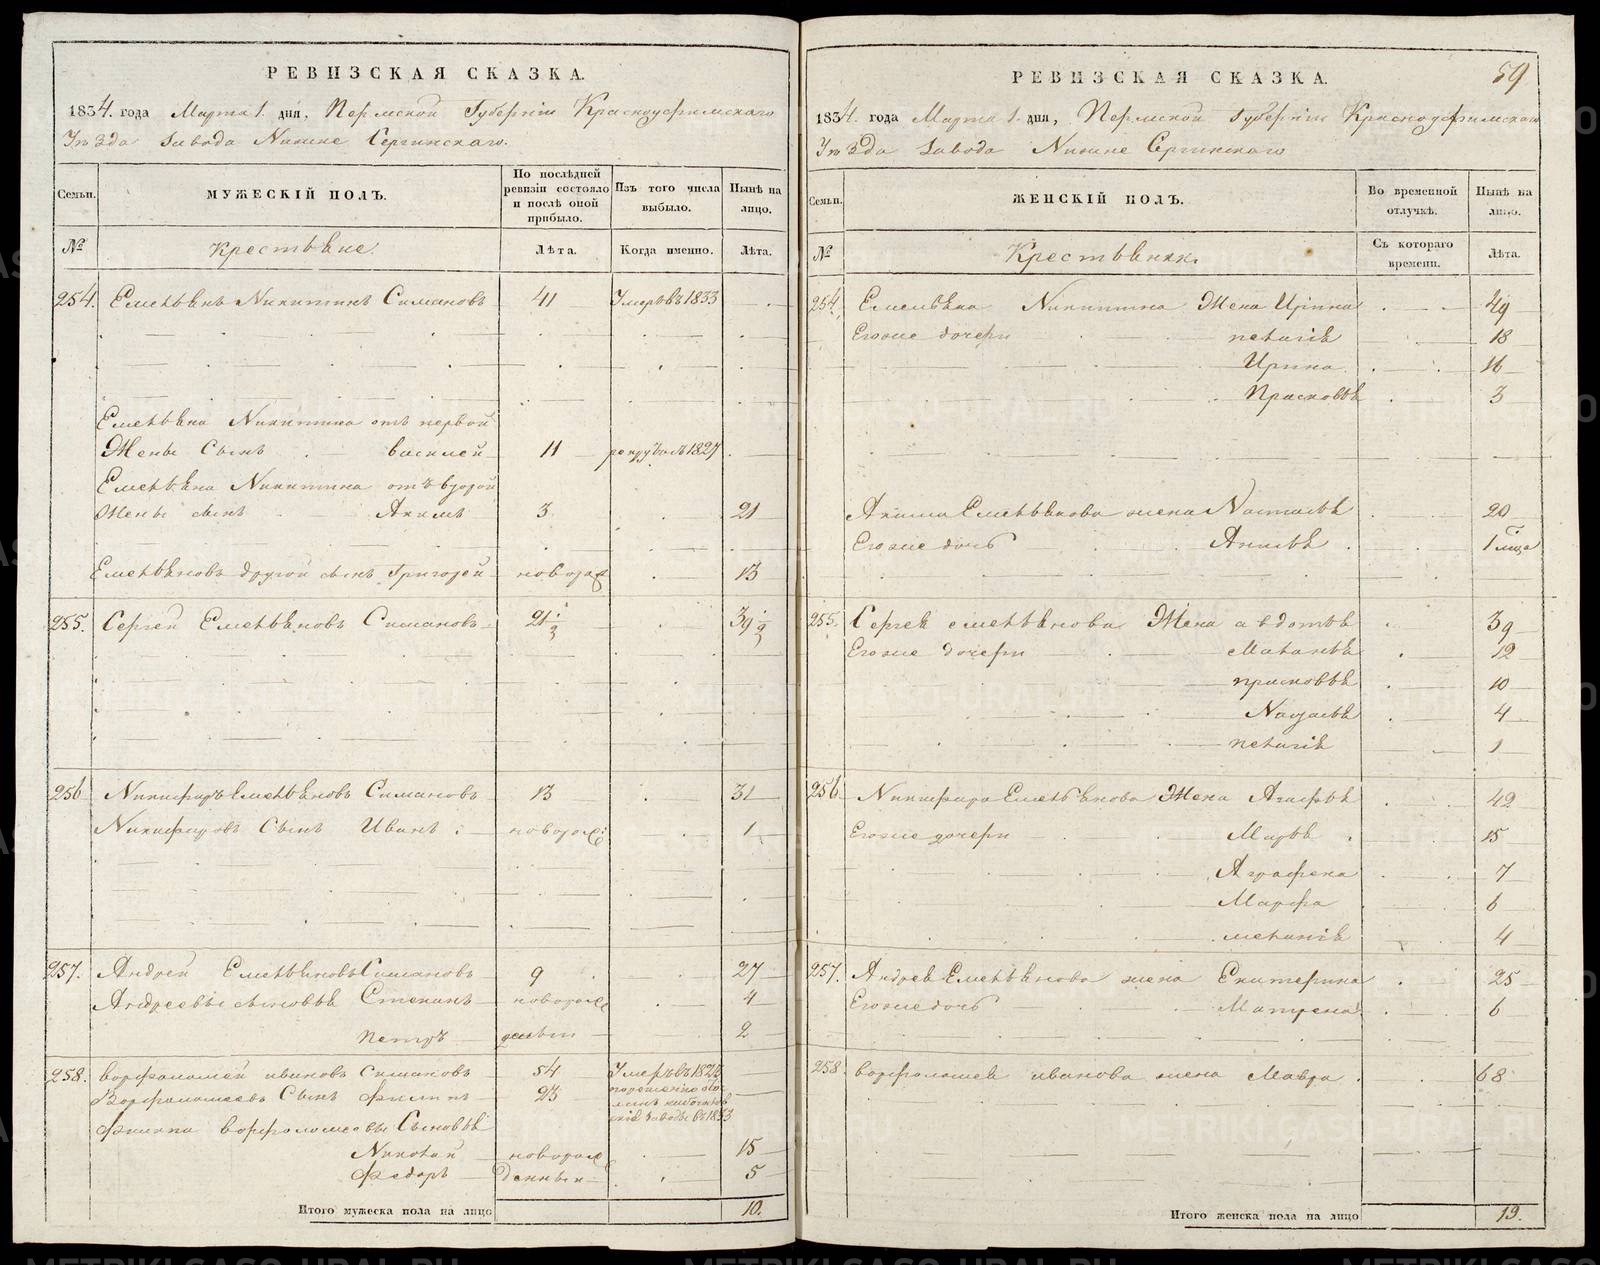 РЕВИЗСКАЯ СКАЗКА.
1834. года Марта 1. дня, Пермской Губернiи Красноуфимскаго
Уѣзда Завода Нижне Сергинскаго.
Семьи.
МУЖЕСКIЙ ПОЛЪ.
По послѣдней ревизiи состояло и послѣ оной прибыло.
Изъ того числа выбыло.
Нынѣ на лицо.
№
Крестьяне.
Лѣта.
Когда именно.
Лѣта.
254. Емельянъ Никитинъ Симановъ 41 Умеръ въ 1833
Емельяна Никитина отъ первой
Жены Сынъ Василей 11 рекрутъ въ 1827
Емельяна Никитина отъ второй
Жены сынъ Акимъ 3 21
Емельяновъ другой сынъ Григорей новорож 13
255. Сергей Емельяновъ Симановъ 21 1/2 39 1/2
256 Никифоръ Емельяновъ Симановъ 13 31
Никифоровъ Сынъ Иванъ новорож: 1
257. Андрей Емельяновъ Симановъ 9 27
Андреевы сыновья Степанъ новорож 4
Петръ 2
258. Варфоломей Ивановъ Симановъ 54 Умеръ въ
Варфоломеевъ Сынъ Филипъ 23
Филипа Варфоломеевы Сыновья
Николай новорож 15
Федоръ денныи 5
Итого мужеска пола на лицо 10.
59
РЕВИЗСКАЯ СКАЗКА.
1834. года Марта 1. дня, Пермской Губернiи Красноуфимскаго
Уѣзда Завода Нижне Сергинскаго
Семьи.
ЖЕНСКIЙ ПОЛЪ.
Во временной отлучкѣ.
Нынѣ на лицо.
№
Крестьянки.
Съ котораго времени.
Лѣта.
254. Емельяна Никитина Жена Ирина 49
Егоже дочери Пелагiя 18
Ирина 16
Прасковья 3
Акима Емельянова жена Наталья 20
Егоже дочь Анисья 1
255. Сергея Емельянова Жена Авдотья 39
Егоже дочери Маланья 12
Прасковья 10
Наталья 4
Пелагiя 1
256 Никифора Емельянова Жена Агафья 42
Егоже дочери Марья 15
Аграфена 7
Марфа 6
Меланiя 4
257. Андрея Емельянова жена Екатерина 25
Егоже дочь Матрена 6
258. Варфоломея Иванова жена Мавра 68
Итого женска пола на лицо 19.
METRIKI.GASO-URAL.RU